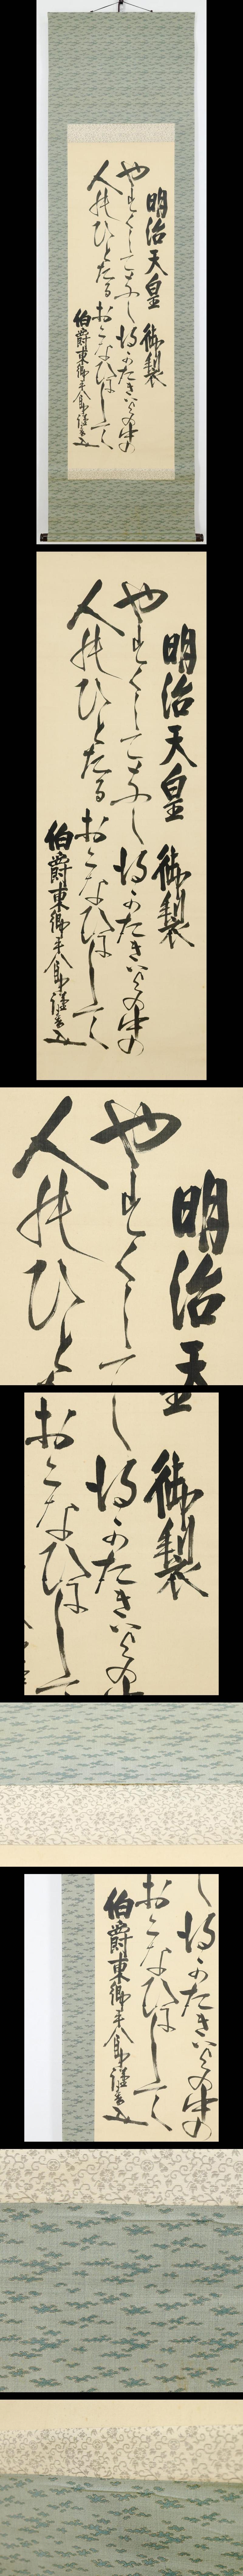 明治天皇 御製
やすくしてなし得かたきハ世の中の
人能ひとたるおこなひにして
伯爵東郷平八郎謹書